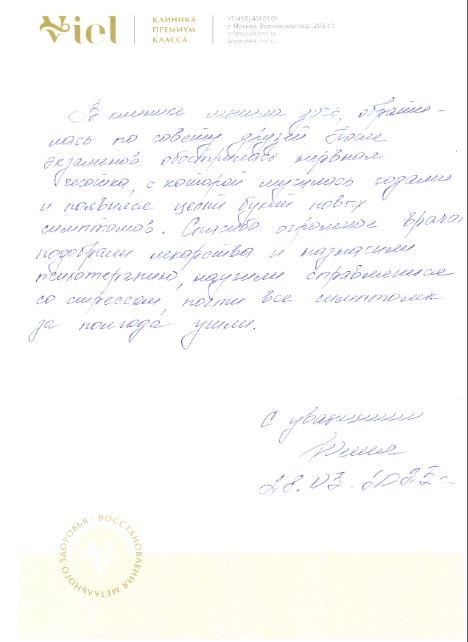 Viel
КЛИНИКА
ПРЕМИУМ
КЛАССА
+7 (495) 401 01 01
г. Москва, Волховский пер., 21/5 с1
info@vielclinic.ru
www.vielclinic.ru
В клинике лечила дочь, обрати-
лась по совету друзей. После
экзаменов обострилась нервная
чесотка, с которой мучилась годами
и появился целый букет новых
симптомов. Спасибо огромное врачам
подобрали лекарства и назначили
психотерапию, научили справляться
со стрессом, почти все симптомы
за полгода ушли.
С уважением
28.03.
ВОССТАНОВЛЕНИЯ МЕТАЛЬНОГО ЗДОРОВЬЯ